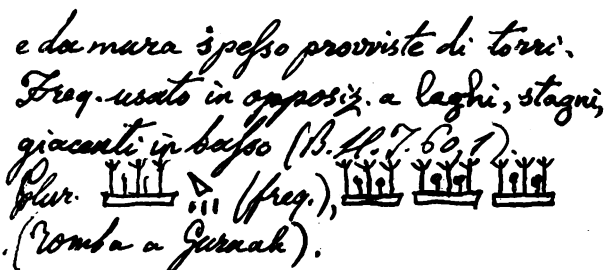 e da mura spesso provviste di torri.
Freq. usato in opposiz. a laghi, stagni,
giacenti in basso (B. H. J. 60, 1).
Plur. (freq.),
(Tomba a Gurnah).